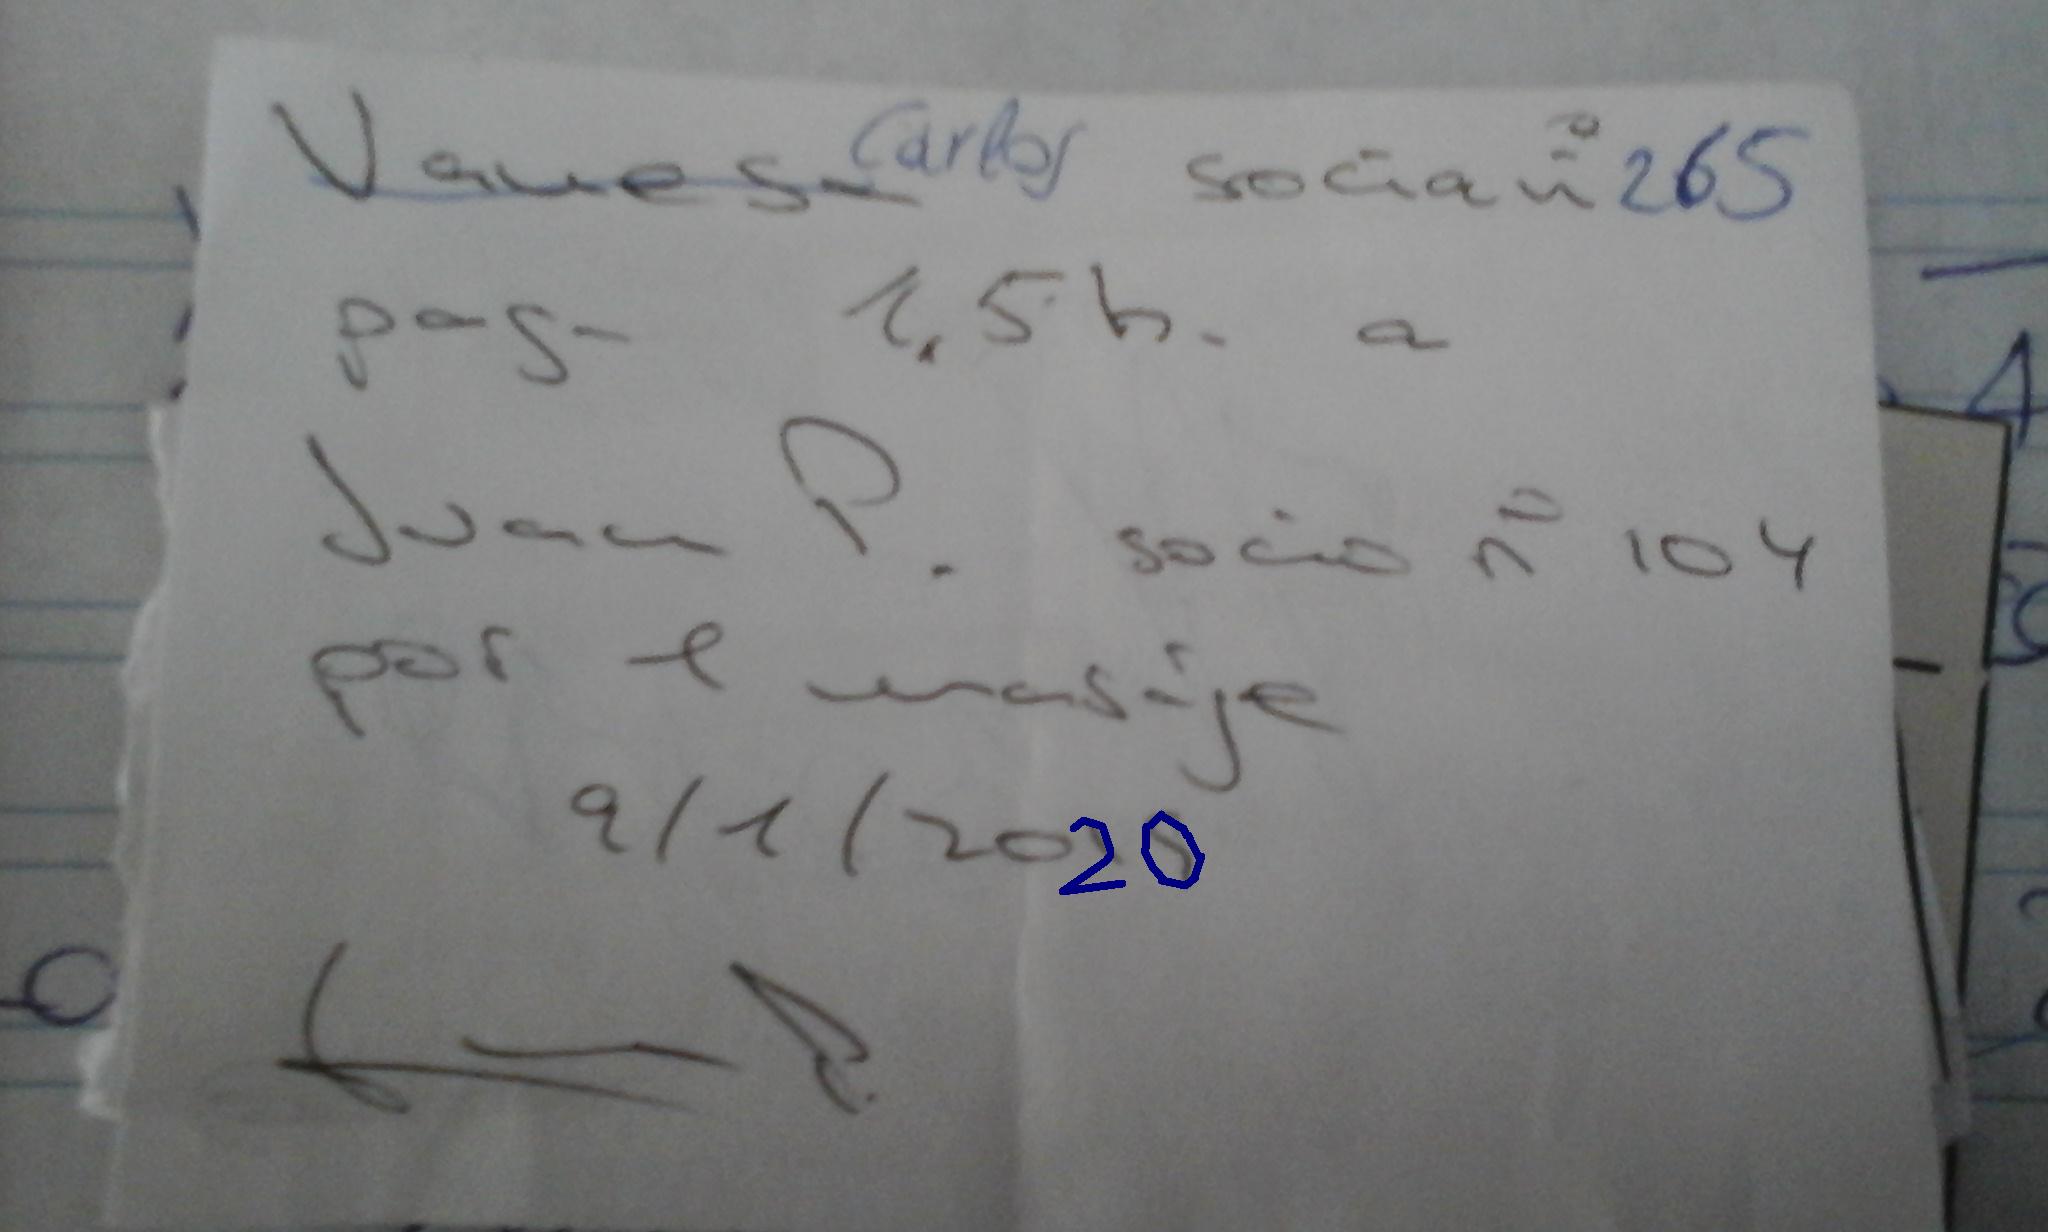 Vanesa Carlos socia nº 265
paga 1,5 h. a
Juan P. socio nº 104
por el masaje
9/1/2020